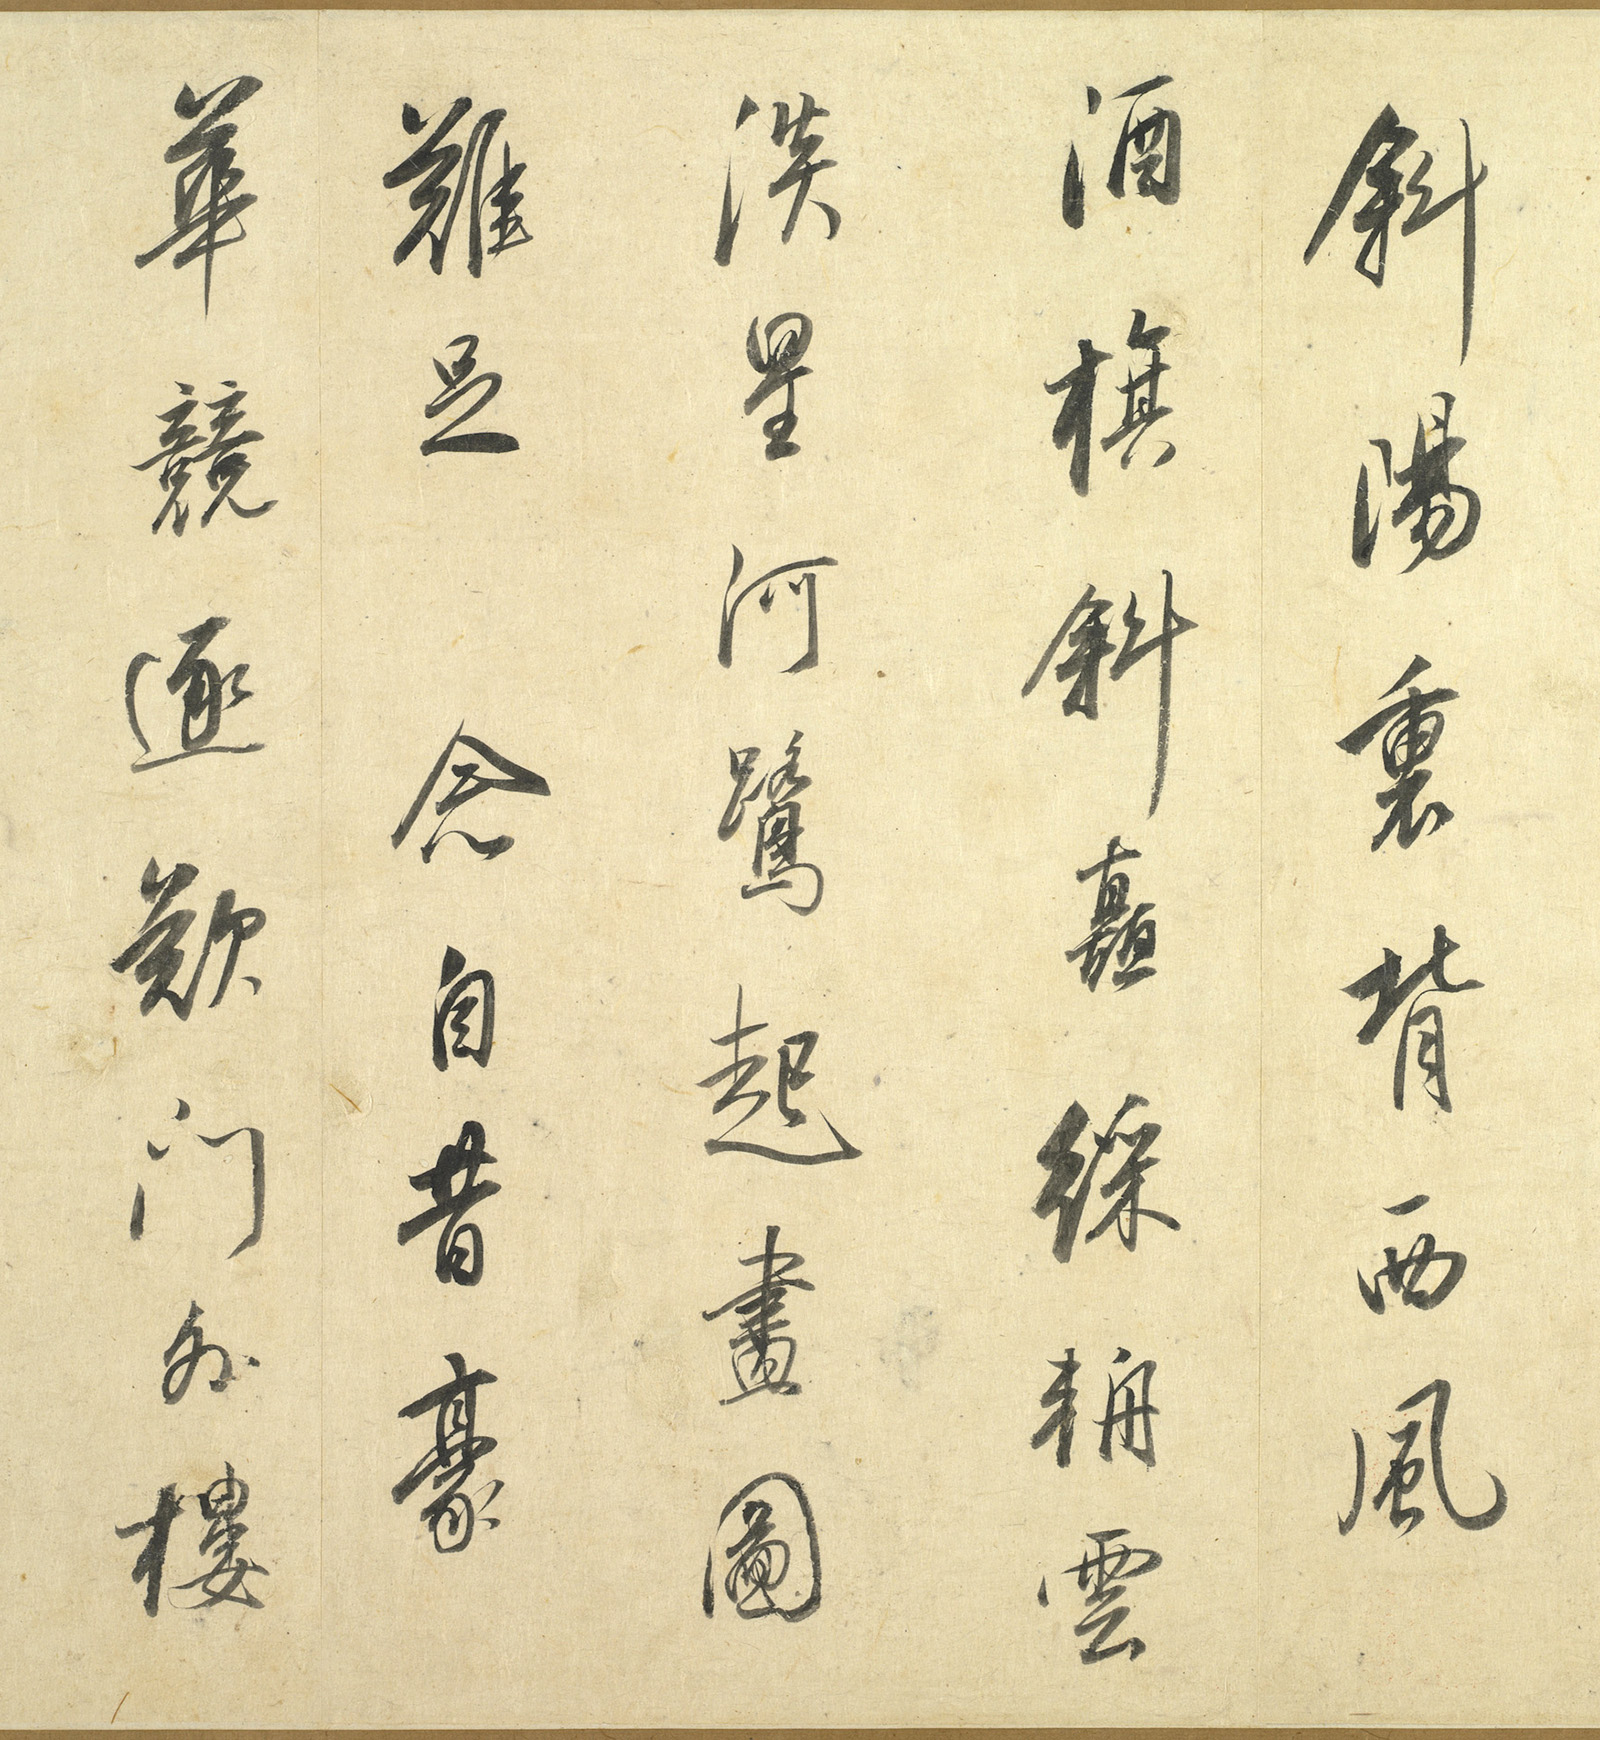 斜陽裏背西風
酒旗斜矗綵輈雲
淡星河鷺起畫圖
難足 念自昔豪
華競逐歎門外樓